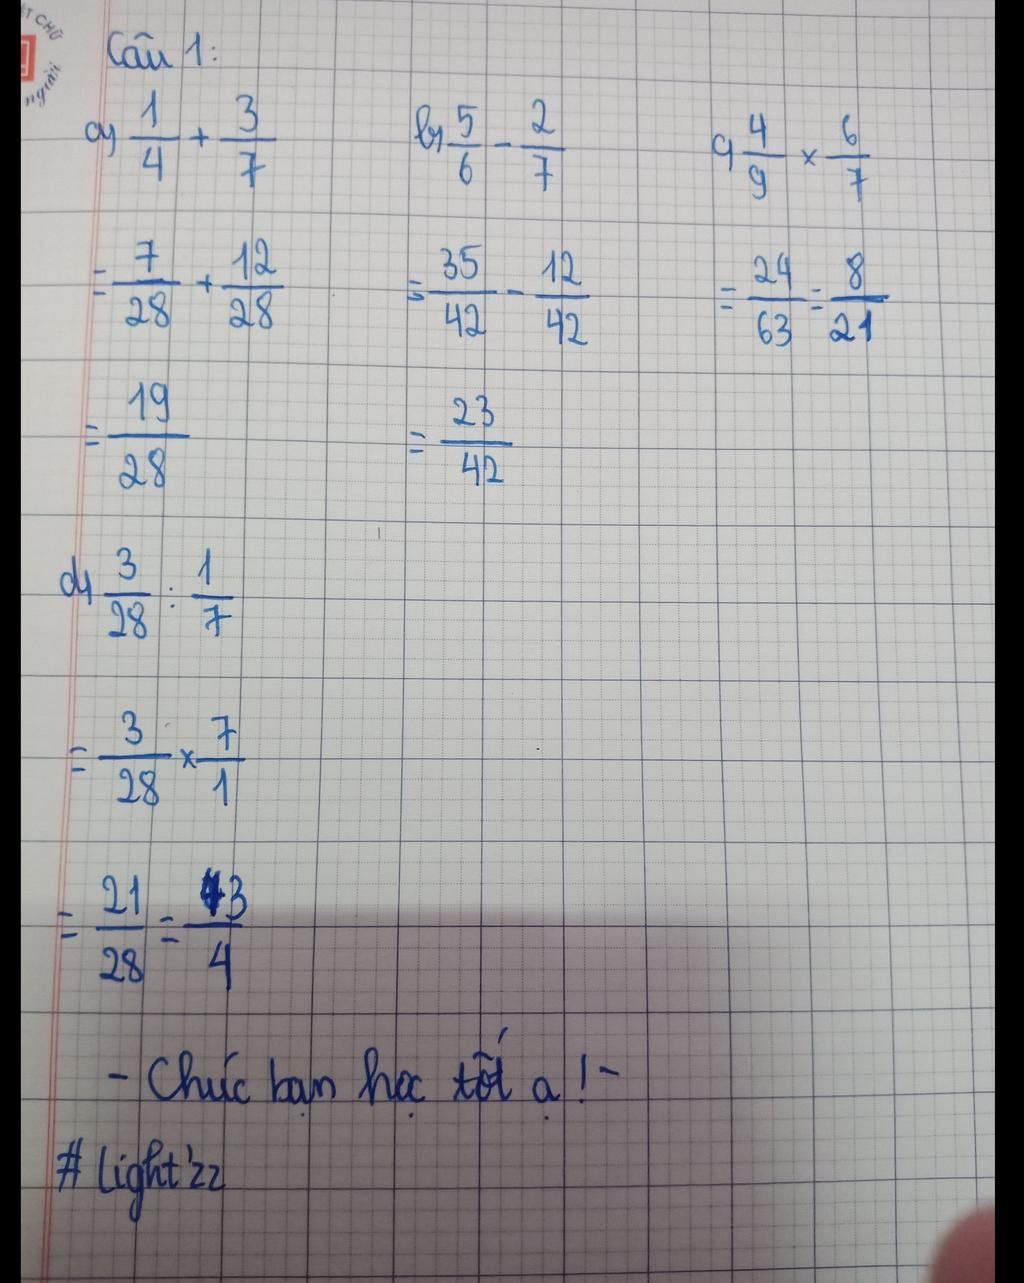 ẾT CHỮ
người
Câu 1:
a) 1/4 + 3/7
= 7/28 + 12/28
= 19/28
b) 5/6 - 2/7
= 35/42 - 12/42
= 23/42
c) 4/9 × 6/7
= 24/63 = 8/21
d) 3/28 : 1/7
= 3/28 × 7/1
= 21/28 = 3/4
- Chúc bạn học tốt ạ! -
# Light'zz